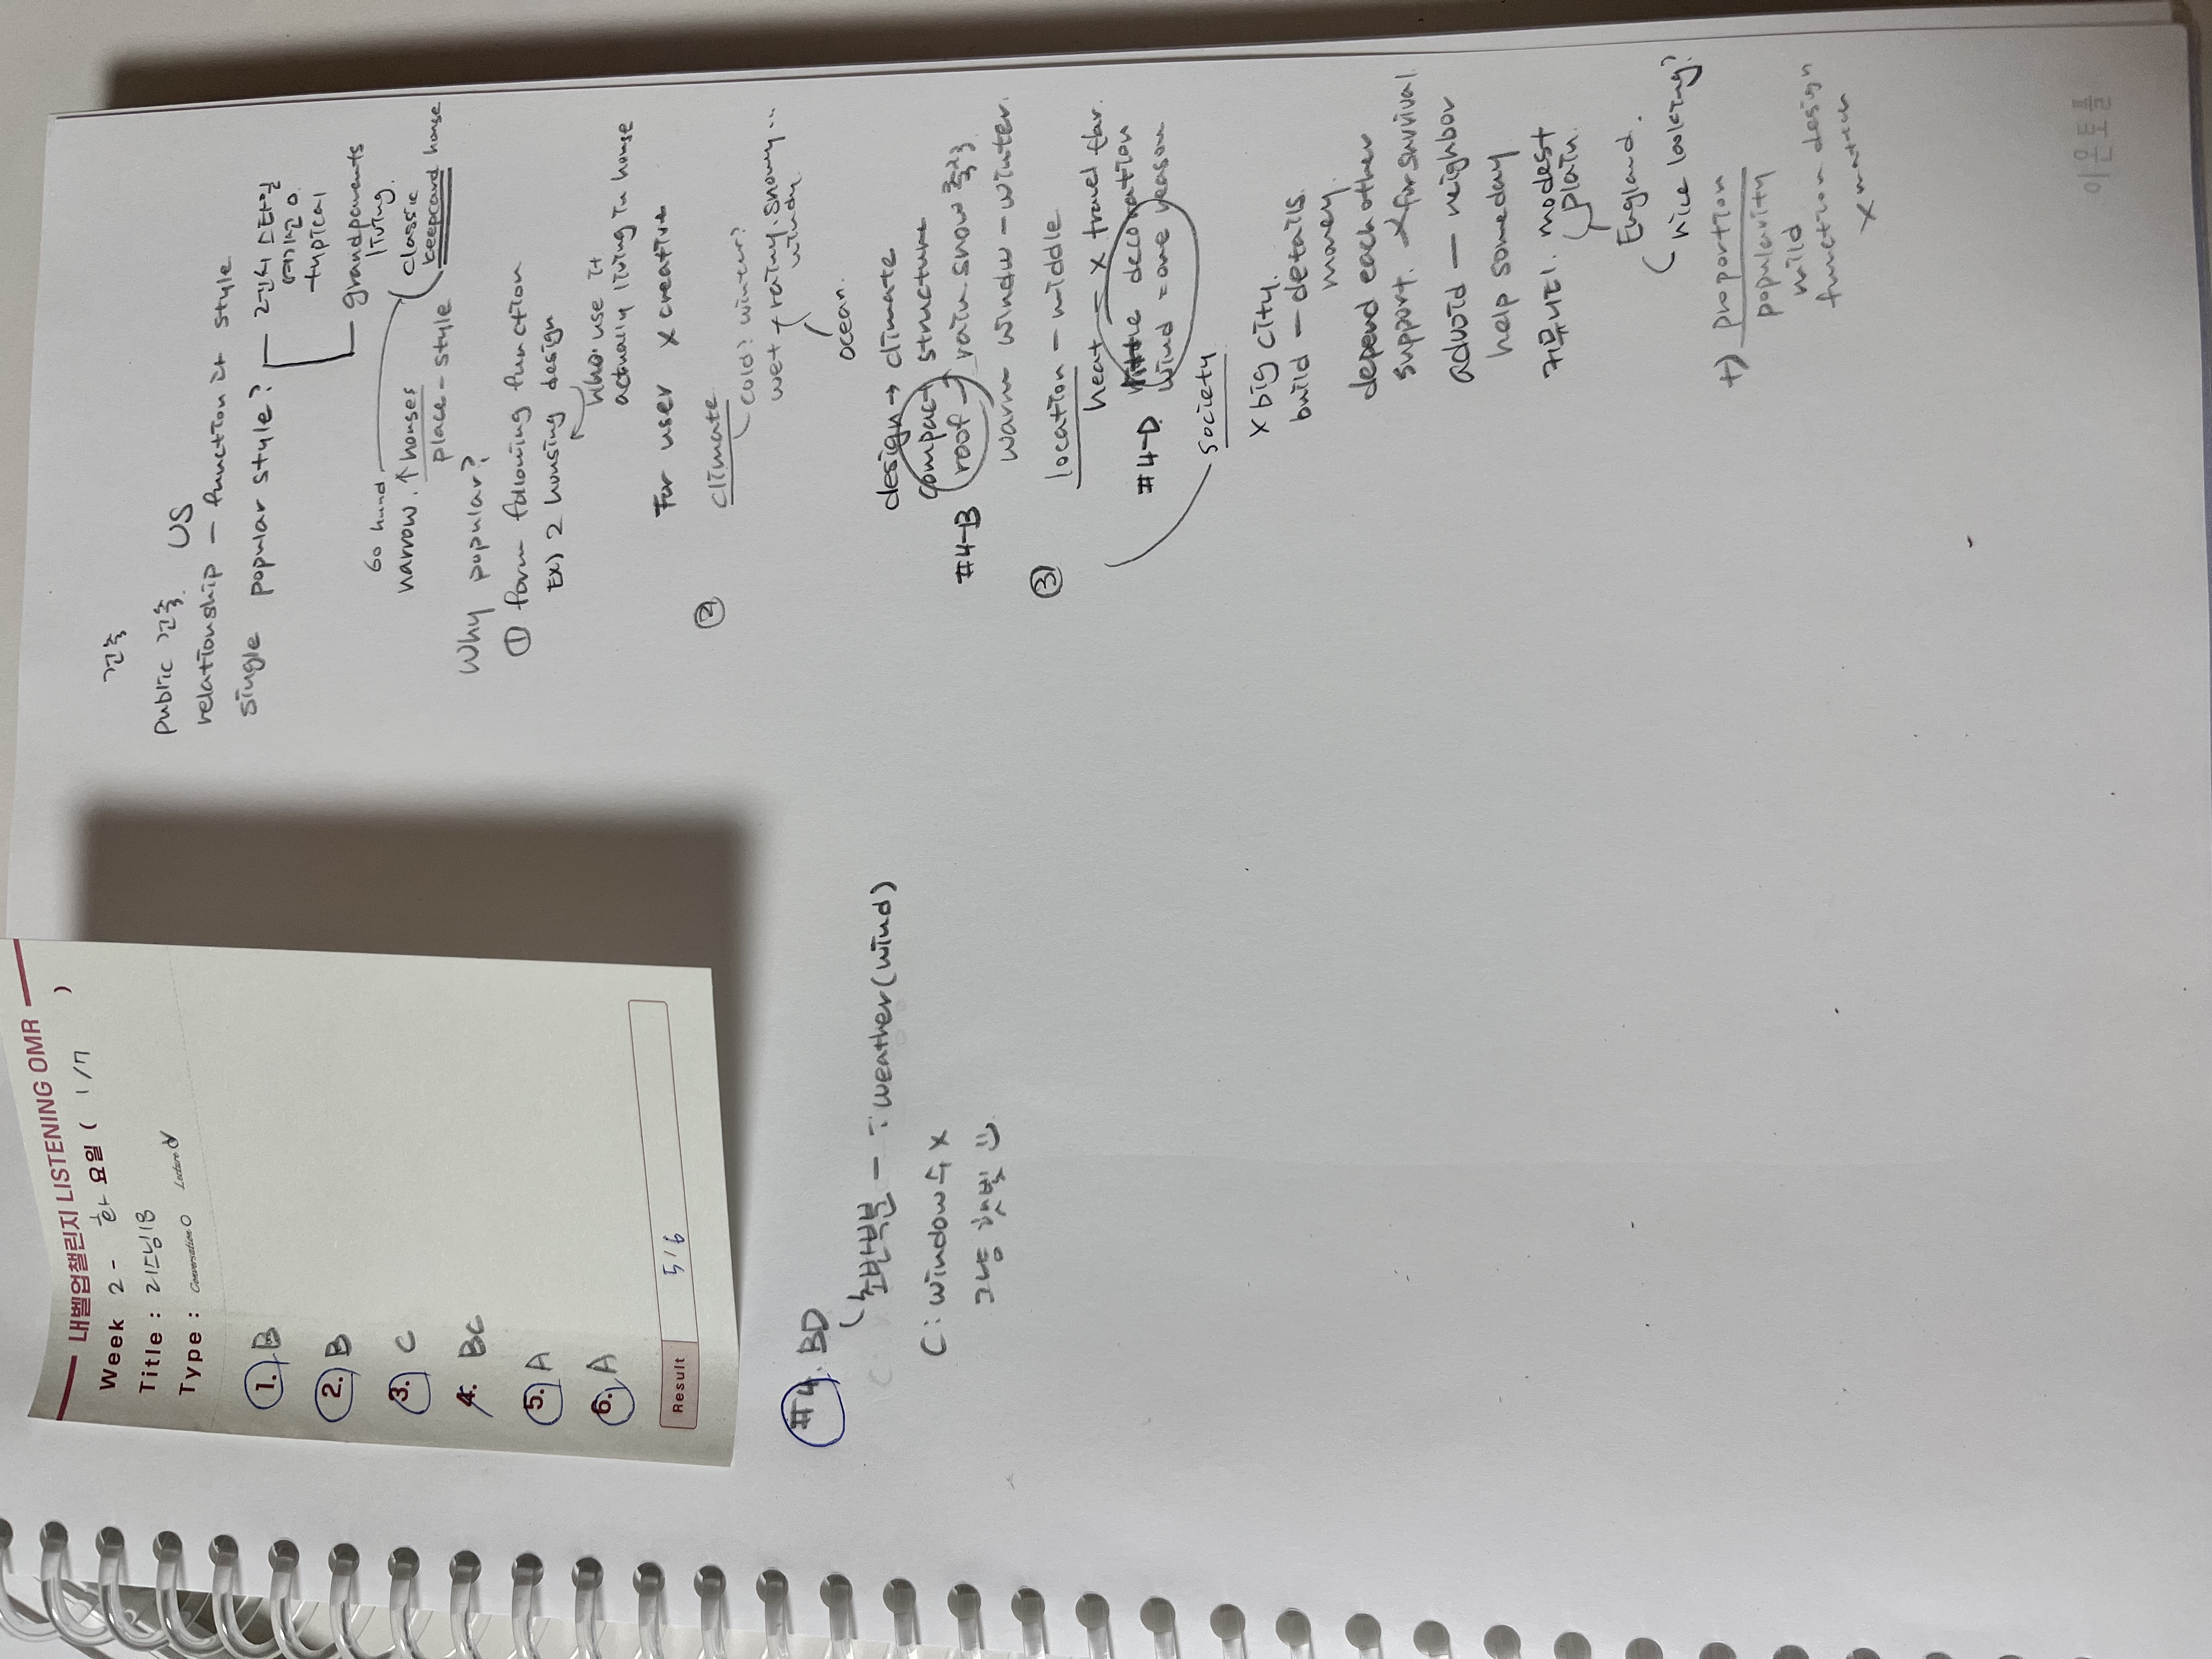 내벨업챌린지 LISTENING OMR
Week 2 - 화 요일 ( 1/7 )
Title : 리스닝18
Type : Conversation O Lecture
1. B
2. B
3. C
4. BC
5. A
6. A
Result 5/6
#4. BD
weather (wind)
C: window수 X
그냥 햇빛
건축
public 건축 US
relationship - function it style
single popular style?
건시 스타일
typical
grandparents
living.
60 hund
narrow. ↑ houses
place - style
classic
keepcard house
Why popular?
① form following function
Ex) 2 housing design
who: use it
actually living in house
For user X creative
② climate
cold? winter?
wet + rainy. snowy..
windy.
ocean.
design → climate
compact structure
#4-B roof → rain. snow
warm window - winter.
③ location - middle
heat - X travel far.
#4-D little decoration
wind = one reason
society
X big city.
build - details
money.
depend each other
support. X for survival
advoid - neighbor
help someday
커뮤니티. modest
plain.
England.
( nice looking?
+) proportion
popularity
mild
function design
X maten
이윤토플